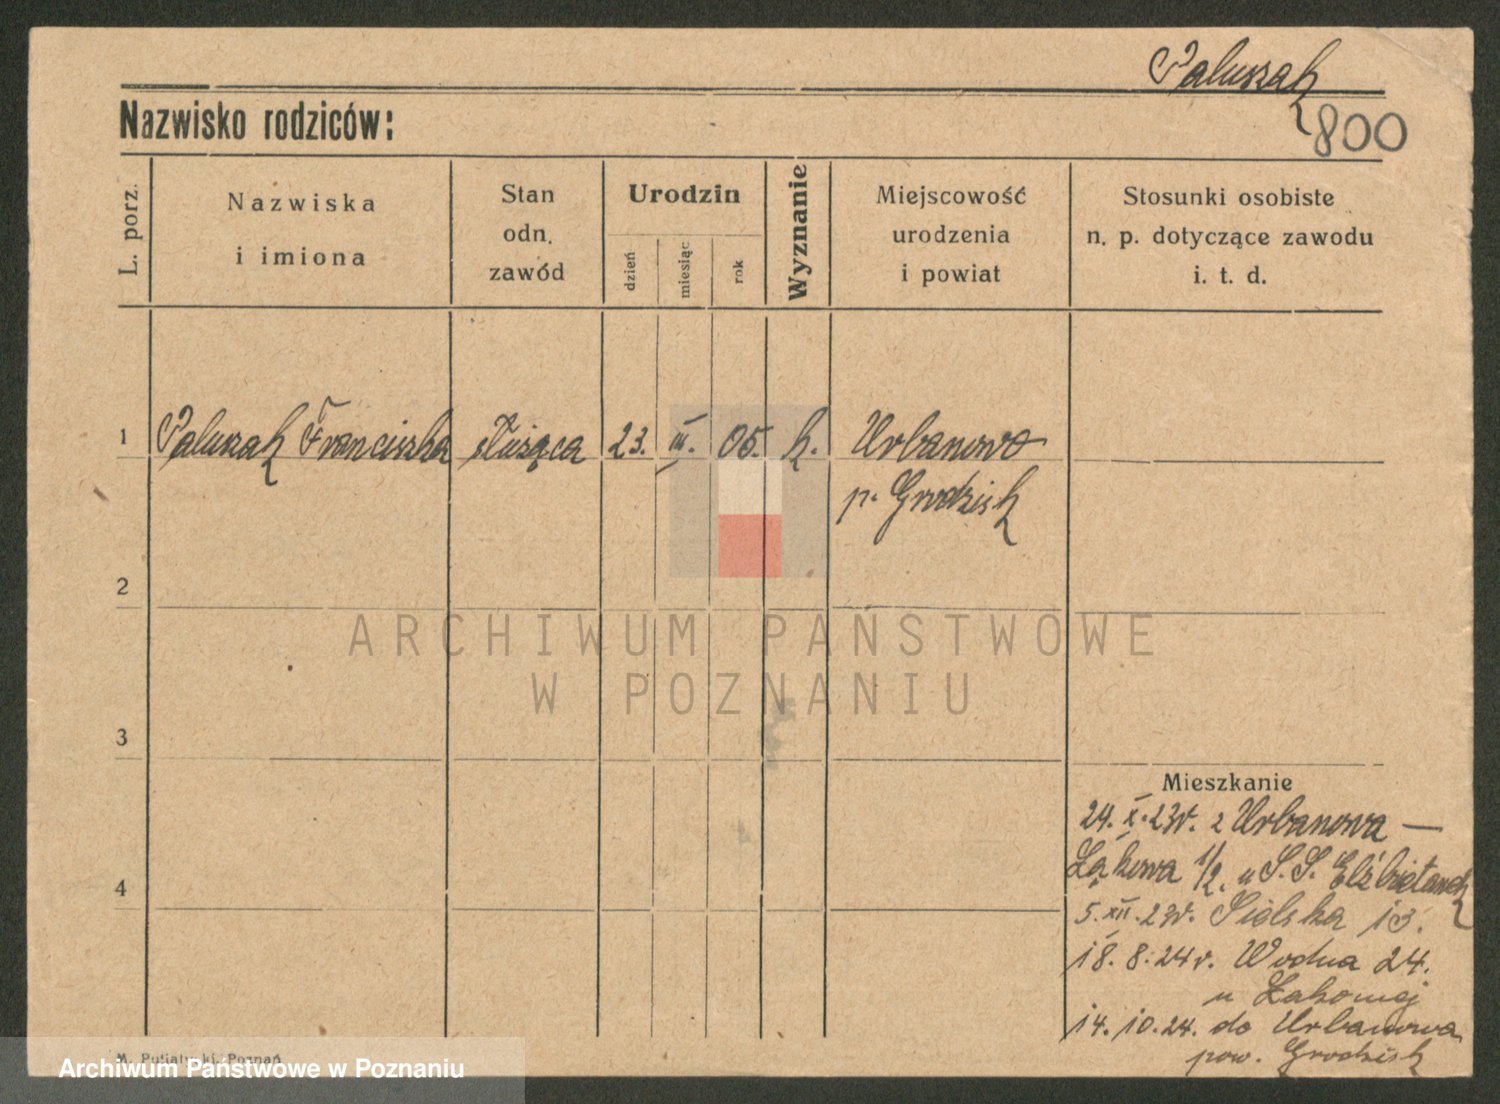 Paluszak
Nazwisko rodziców:
800
L. porz.
Nazwiska
i imiona
Stan
odn.
zawód
Urodzin
dzień
miesiąc
rok
Wyznanie
Miejscowość
urodzenia
i powiat
Stosunki osobiste
n. p. dotyczące zawodu
i. t. d.
1 Paluszak Franciszka służąca 23. III. 05. k. Urbanowo
p. Grodzisk
2
3
4
Mieszkanie
29. X. 23r. z Urbanowa —
Łąkowa 1/2. u S.S. Elżbietanek
5. XII. 23r. Sielska 13.
18. 8. 24r. Wodna 24.
u Łakomej
14. 10. 24. do Urbanowa
pow. Grodzisk
M. Putiatycki, Poznań
ARCHIWUM PAŃSTWOWE
W POZNANIU
Archiwum Państwowe w Poznaniu